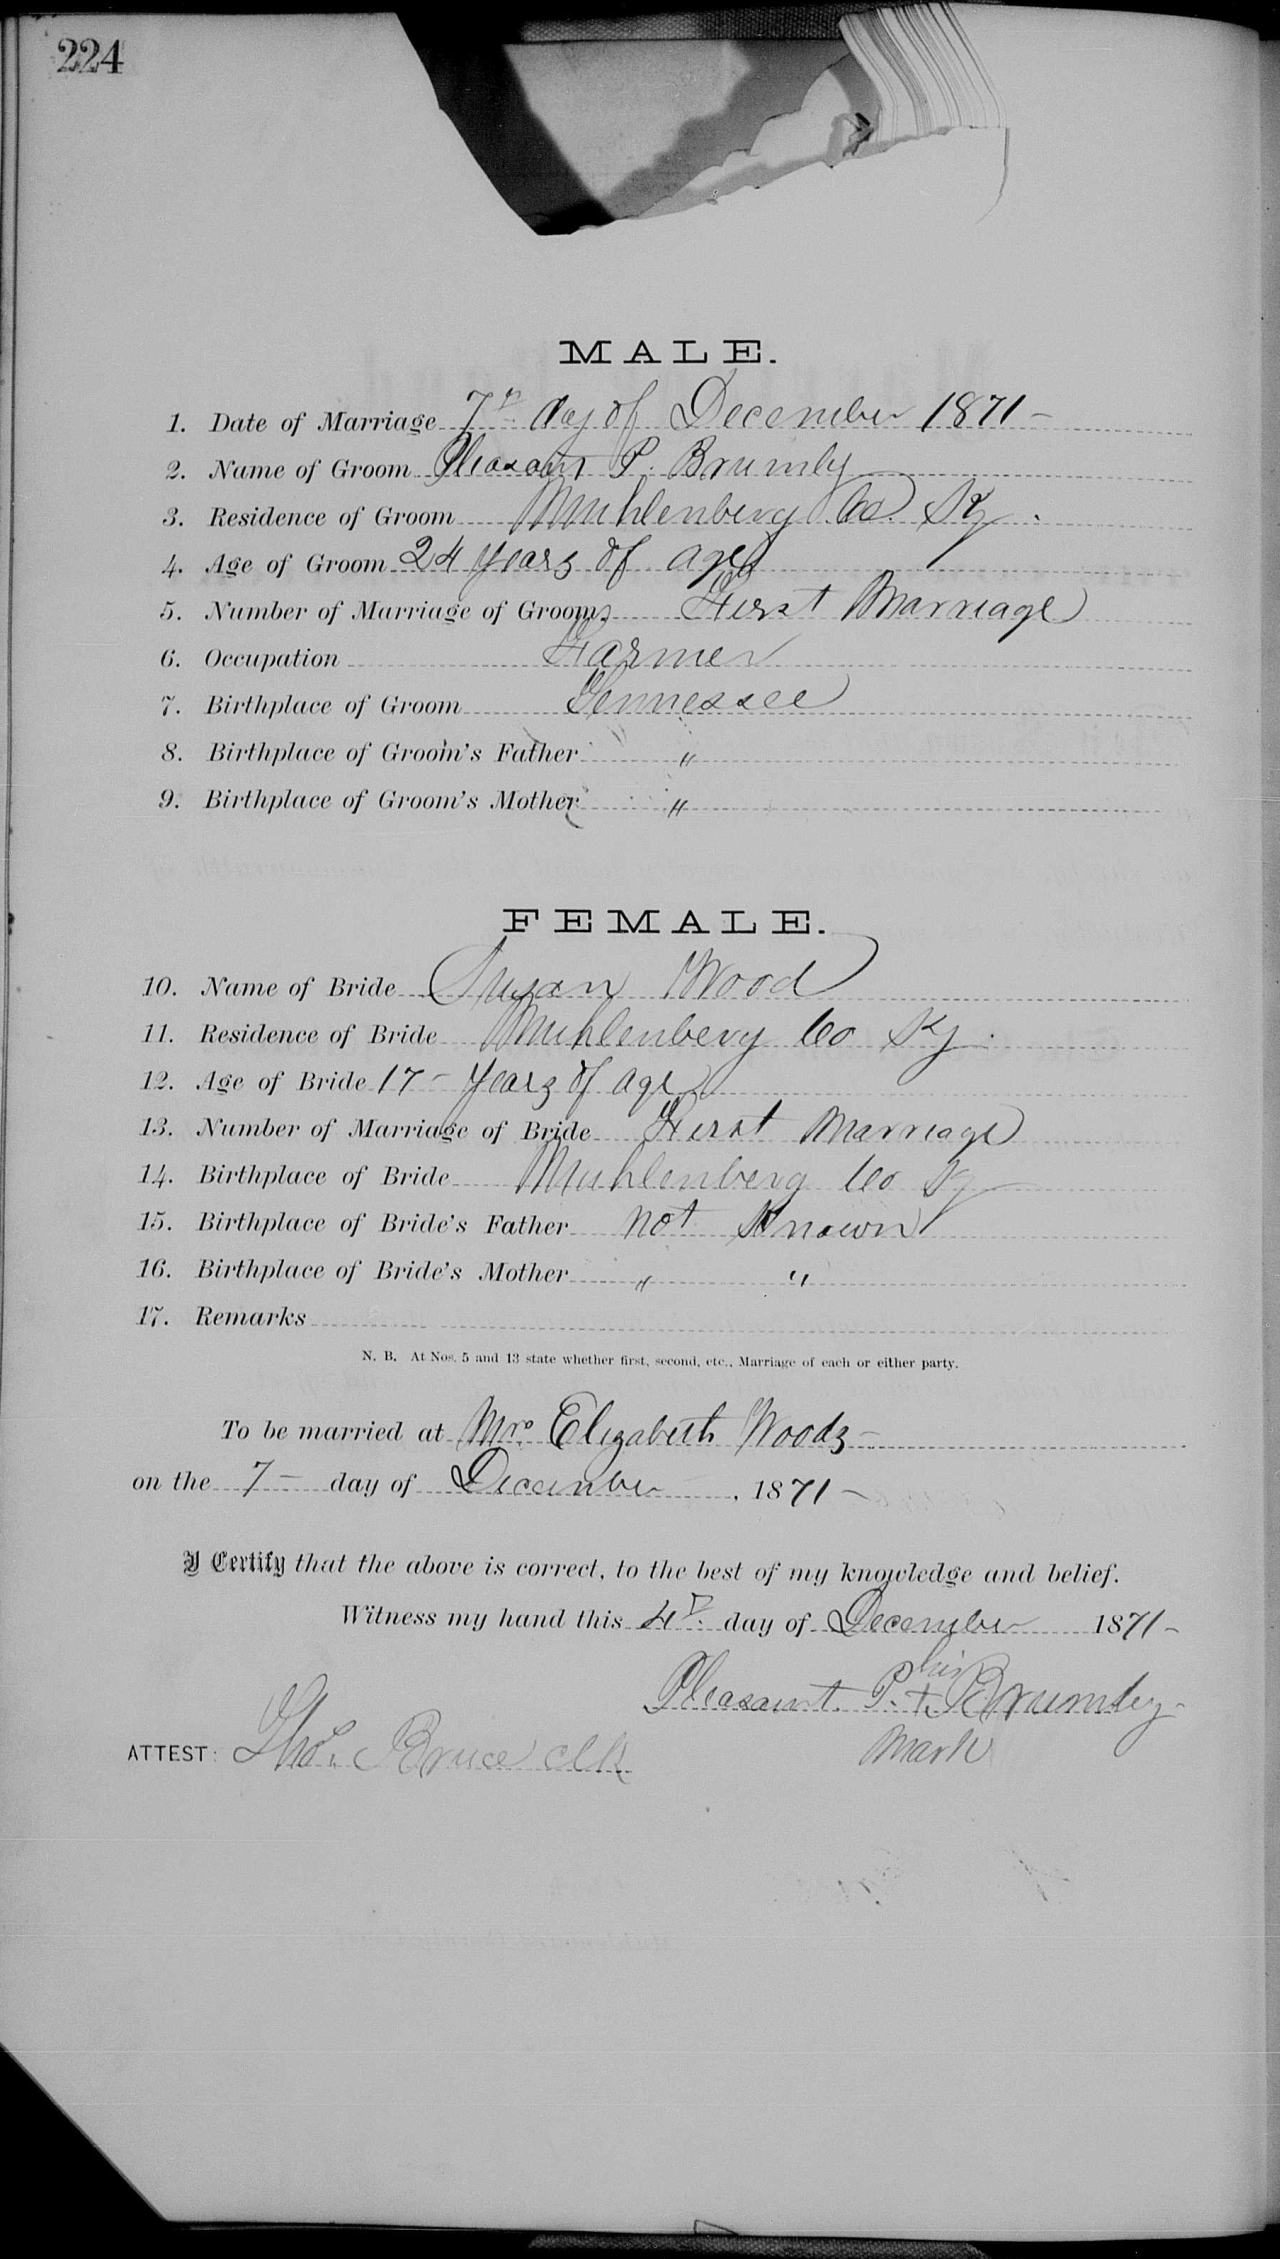 224
MALE.
1. Date of Marriage 7th day of December 1871 -
2. Name of Groom Pleasant P. Brumly
3. Residence of Groom Muhlenberg Co. Ky.
4. Age of Groom 24 years of age
5. Number of Marriage of Groom First Marriage
6. Occupation Farmer
7. Birthplace of Groom Tennessee
8. Birthplace of Groom's Father "
9. Birthplace of Groom's Mother "
FEMALE.
10. Name of Bride Susan Wood
11. Residence of Bride Muhlenberg Co Ky.
12. Age of Bride 17 - years of age
13. Number of Marriage of Bride First Marriage
14. Birthplace of Bride Muhlenberg Co Ky
15. Birthplace of Bride's Father not Known
16. Birthplace of Bride's Mother " "
17. Remarks
N. B. At Nos. 5 and 13 state whether first, second, etc., Marriage of each or either party.
To be married at Mrs. Elizabeth Woods -
on the 7 - day of December, 1871 -
I Certify that the above is correct, to the best of my knowledge and belief.
Witness my hand this 4th day of December 1871 -
his
Pleasant P. + Brumley
mark
ATTEST: Thos. Bruce clk